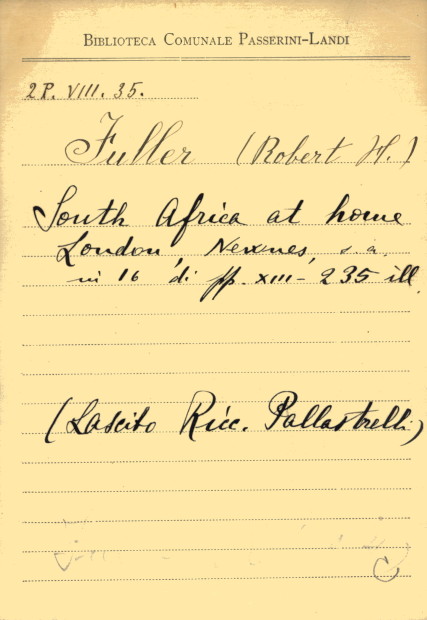 BIBLIOTECA COMUNALE PASSERINI-LANDI
2P. VIII. 35.
Fuller (Robert H.)
South Africa at home
London, Newnes, s.a.
in 16° di pp. XIII-235 ill.
(Lascito Ricc. Pallastrelli)